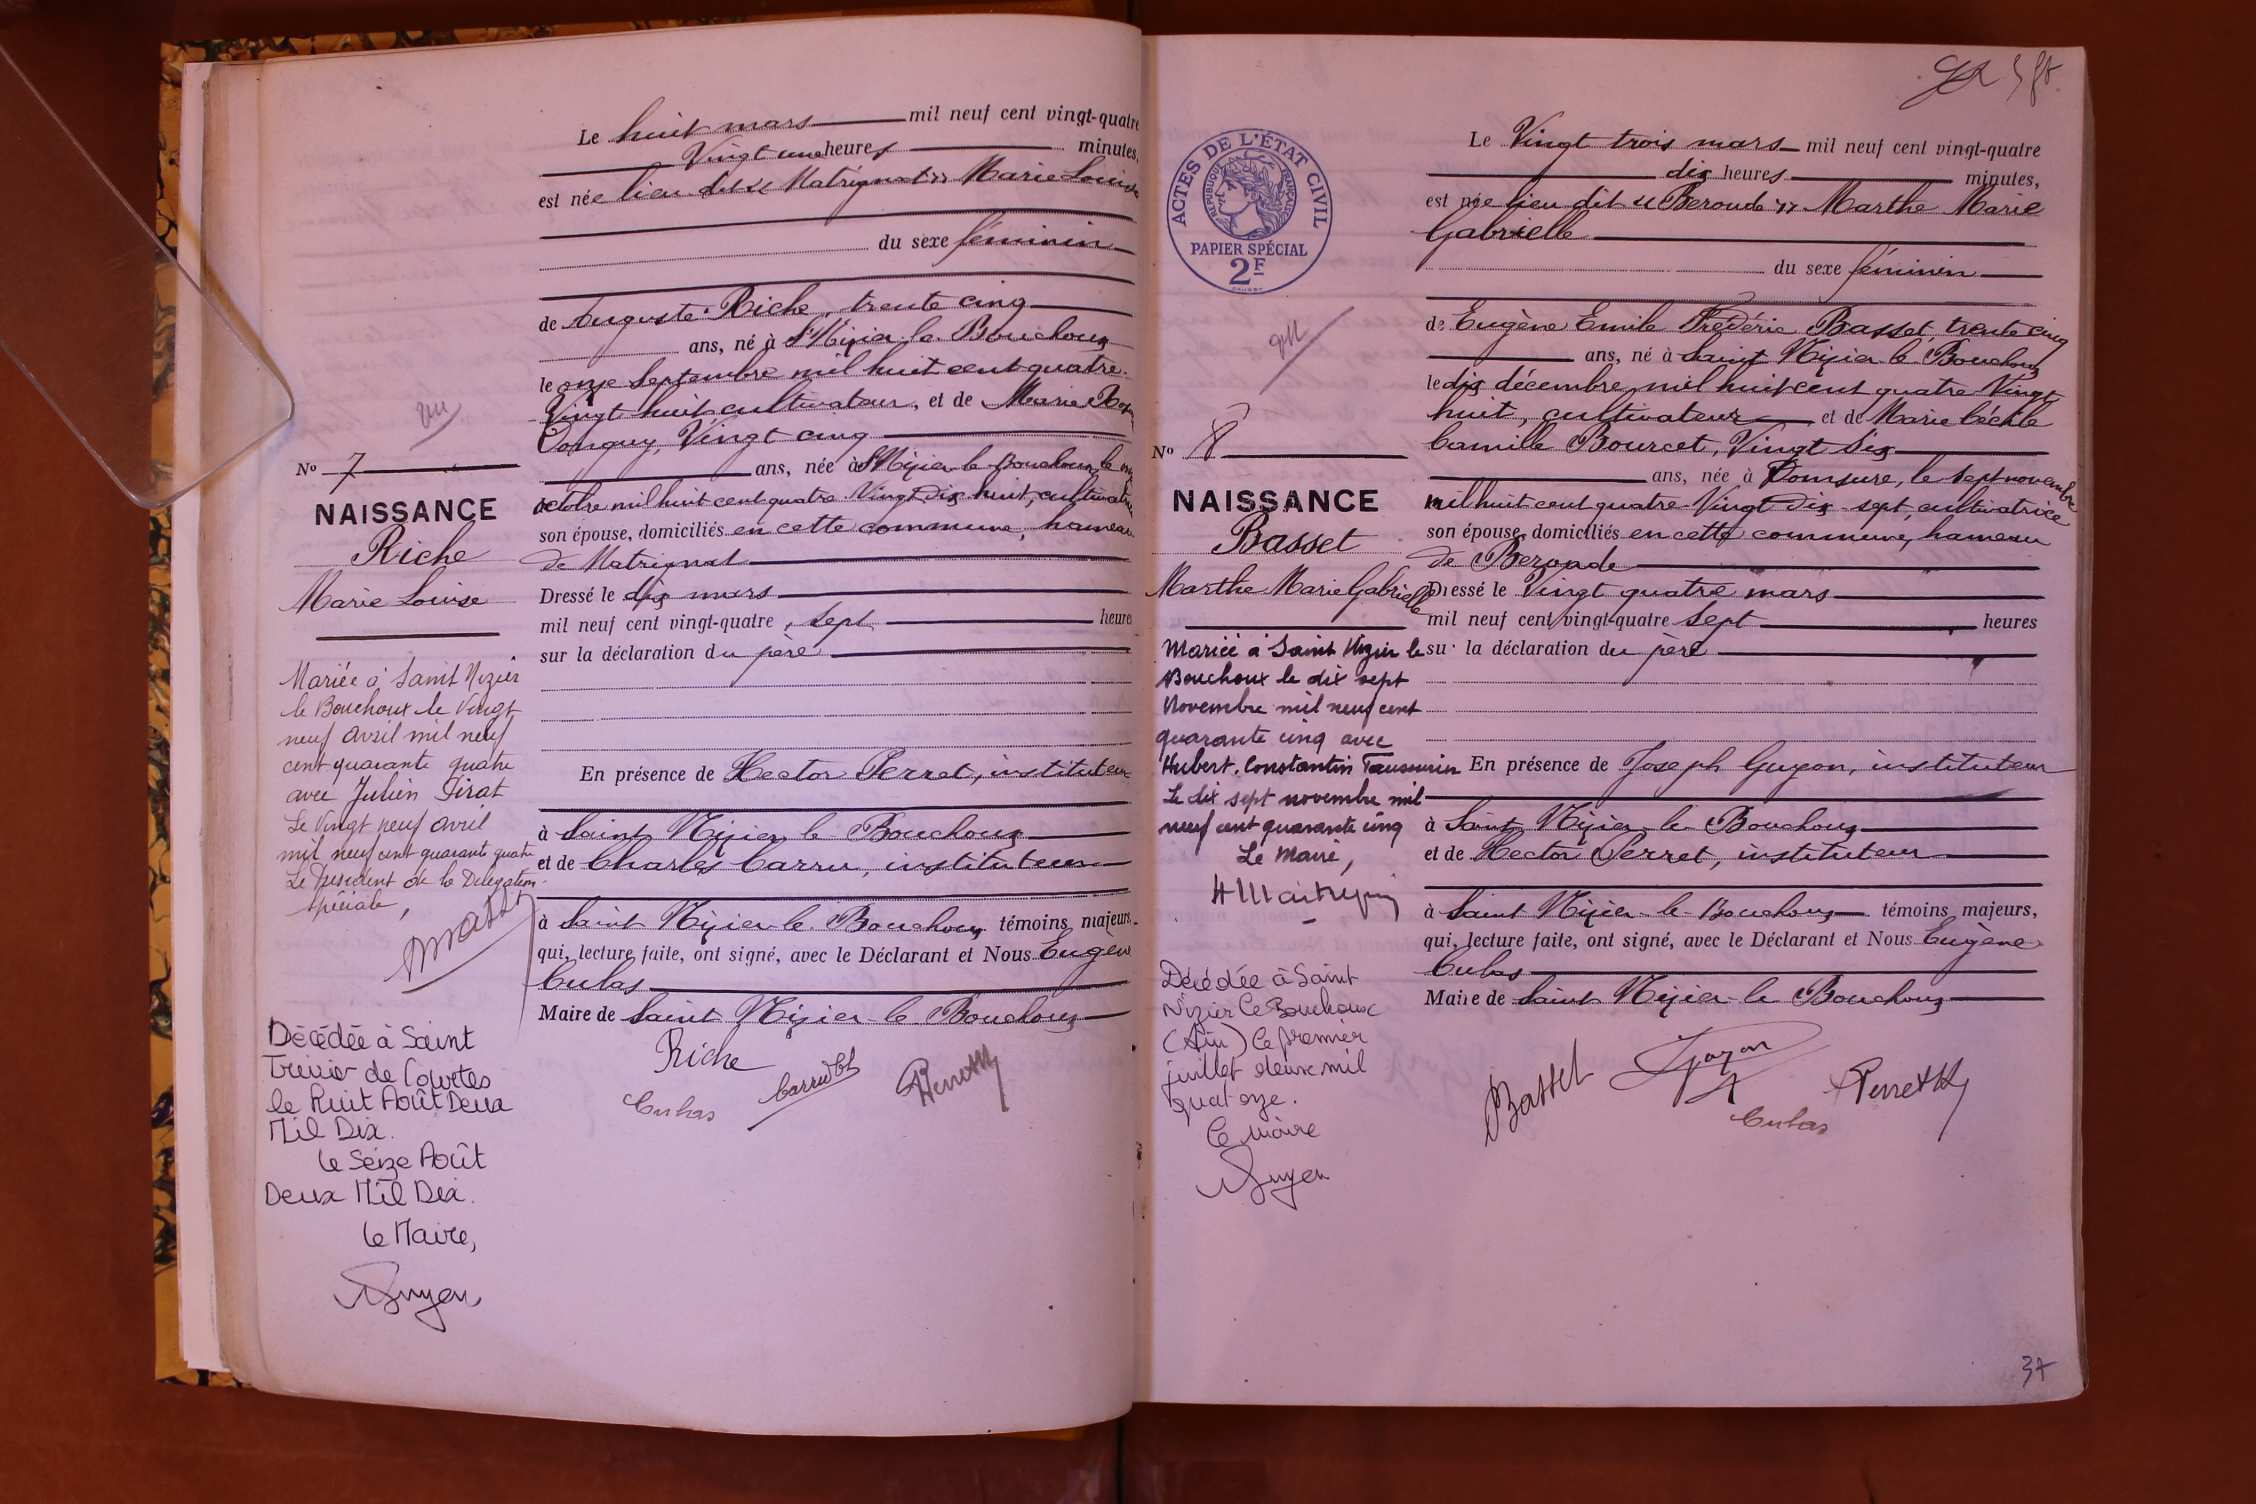 Le huit mars mil neuf cent vingt-quatre
Vingt une heures minutes,
est née lieu dit « Matrignat » Marie Louise
du sexe féminin
de Auguste Riche, trente cinq
ans, né à St Nizier le Bouchoux
le onze septembre mil huit cent quatre
Vingt huit cultivateur, et de Marie
Vingt cinq
ans, née à St Nizier le Bouchoux, le
octobre mil huit cent quatre Vingt dix huit,
son épouse, domiciliés en cette commune, hameau
de Matrignat
Dressé le dix mars
mil neuf cent vingt-quatre, sept heures
sur la déclaration du père
En présence de Hector Perret, instituteur
à Saint Nizier le Bouchoux
et de Charles Carru, instituteur
à Saint Nizier le Bouchoux témoins majeurs,
qui, lecture faite, ont signé, avec le Déclarant et Nous Eugène
Cubas
Maire de Saint Nizier le Bouchoux
Riche
Cubas
No 7
NAISSANCE
Riche
Marie Louise
Mariée à Saint Nizier
le Bouchoux le Vingt
neuf avril mil neuf
cent quarante quatre
avec Julien Pirat
Le Vingt neuf avril
mil neuf cent quarante quatre
Le président de la Délégation
spéciale,
Décédée à Saint
Trivier de Courtes
le Huit Août Deux
Mil Dix.
le Seize Août
Deux Mil Dix.
Le Maire,
ACTES DE L'ÉTAT CIVIL
RÉPUBLIQUE FRANÇAISE
PAPIER SPÉCIAL
2F
Le Vingt trois mars mil neuf cent vingt-quatre
dix heures minutes,
est née lieu dit « Beroude » Marthe Marie
Gabrielle
du sexe féminin
de Eugène Emile Frédéric Basset, trente cinq
ans, né à Saint Nizier le Bouchoux
le dix décembre mil huit cent quatre Vingt
huit, cultivateur et de Marie Cécile
Camille Bourcet, Vingt six
ans, née à Domsure, le sept novembre
mil huit cent quatre Vingt dix sept, cultivatrice
son épouse, domiciliés en cette commune, hameau
de Beroude
Dressé le Vingt quatre mars
mil neuf cent vingt-quatre sept heures
sur la déclaration du père
En présence de Joseph Guyon, instituteur
à Saint Nizier le Bouchoux
et de Hector Perret, instituteur
à Saint Nizier le Bouchoux témoins majeurs,
qui, lecture faite, ont signé, avec le Déclarant et Nous Eugène
Cubas
Maire de Saint Nizier le Bouchoux
Basset
Guyon
Cubas
No 8
NAISSANCE
Basset
Marthe Marie Gabrielle
Mariée à Saint Nizier le
Bouchoux le dix sept
Novembre mil neuf cent
quarante cinq avec
Hubert, Constantin
Le dix sept novembre mil
neuf cent quarante cinq
Le Maire,
Décédée à Saint
Nizier le Bouchoux
(Ain) le premier
juillet deux mil
quatorze.
Le Maire
37